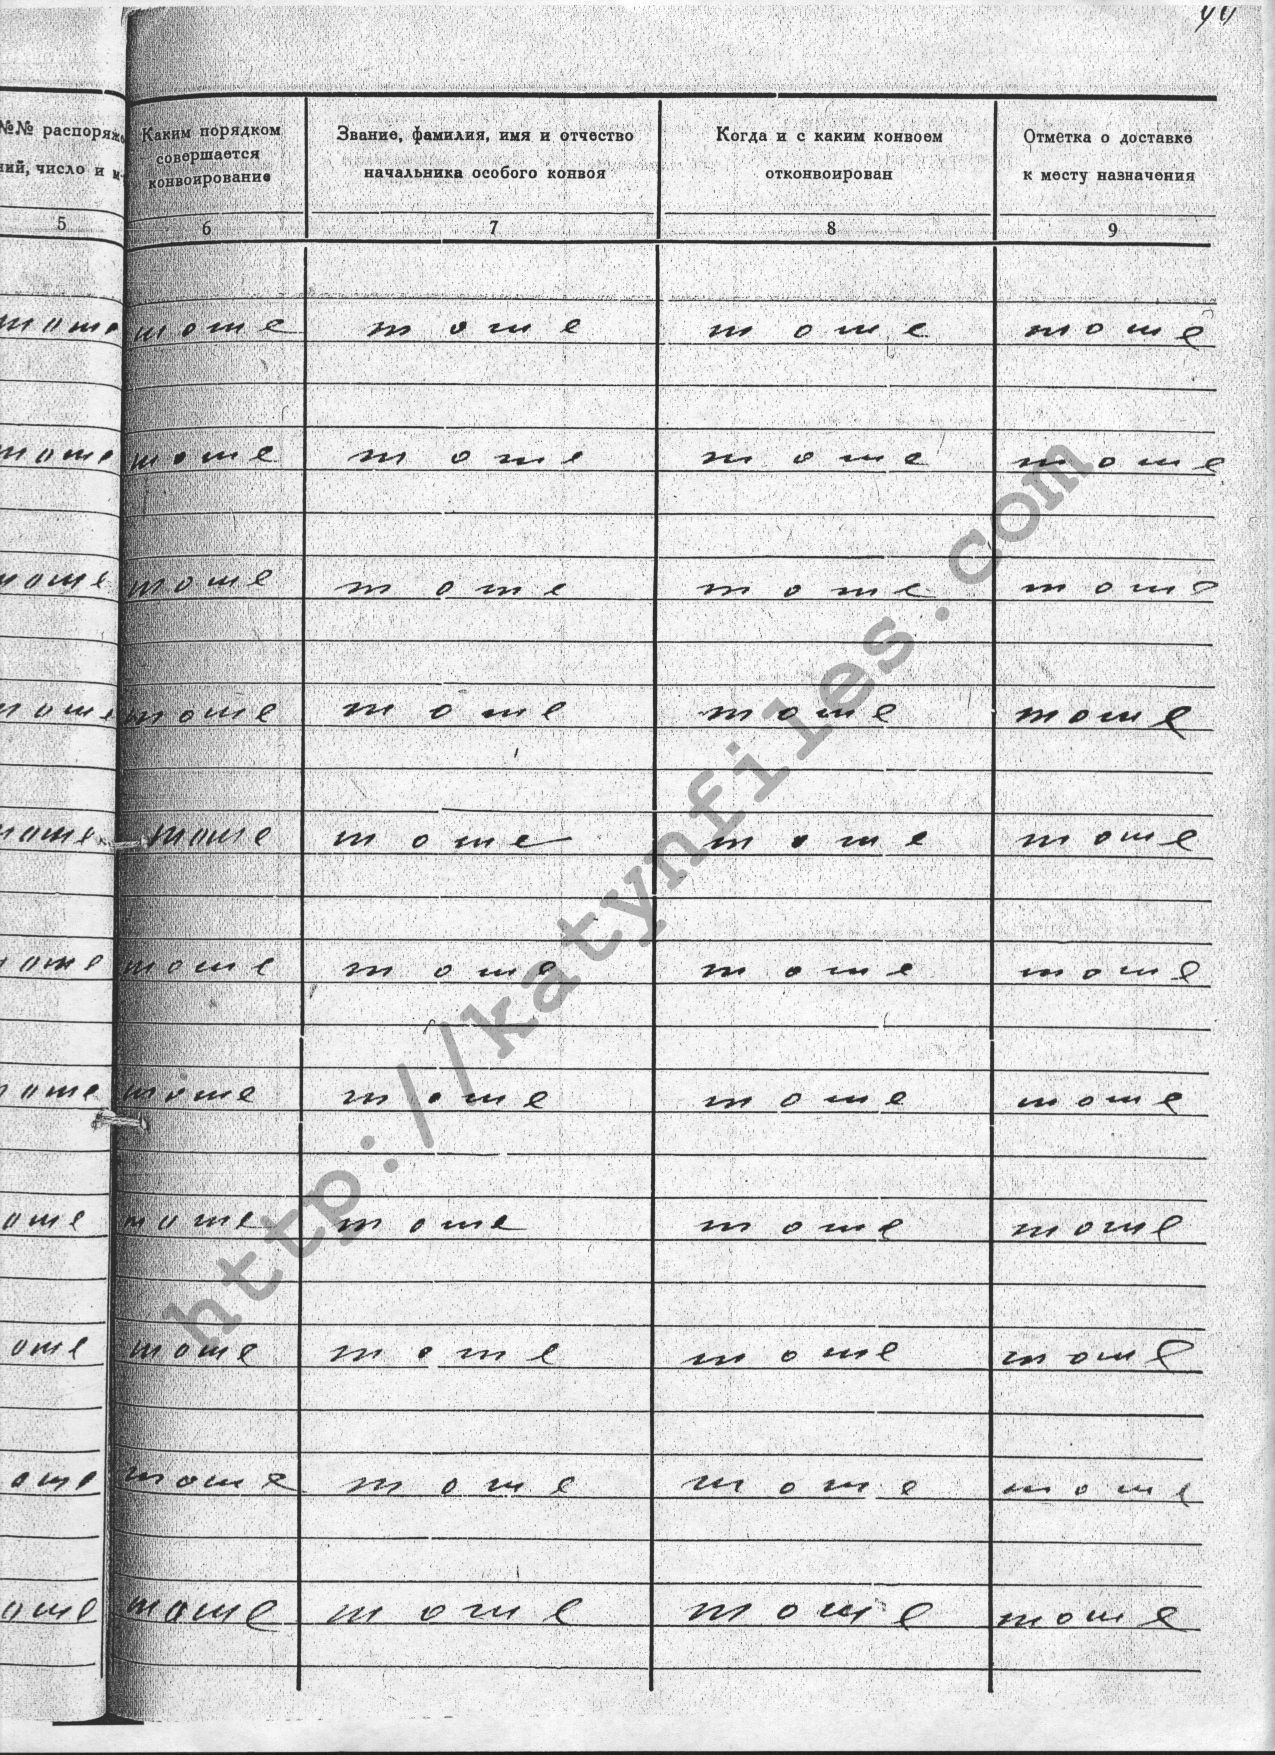 №№ распоряже
ний, число и м-
5
Каким порядком
совершается
конвоирование
6
Звание, фамилия, имя и отчество
начальника особого конвоя
7
Когда и с каким конвоем
отконвоирован
8
Отметка о доставке
к месту назначения
9
тоже тоже тоже тоже тоже
тоже тоже тоже тоже тоже
тоже тоже тоже тоже тоже
тоже тоже тоже тоже тоже
тоже тоже тоже тоже тоже
тоже тоже тоже тоже тоже
тоже тоже тоже тоже тоже
оже тоже тоже тоже тоже
оже тоже тоже тоже тоже
оже тоже тоже тоже тоже
оже тоже тоже тоже тоже
http://katynfiles.com